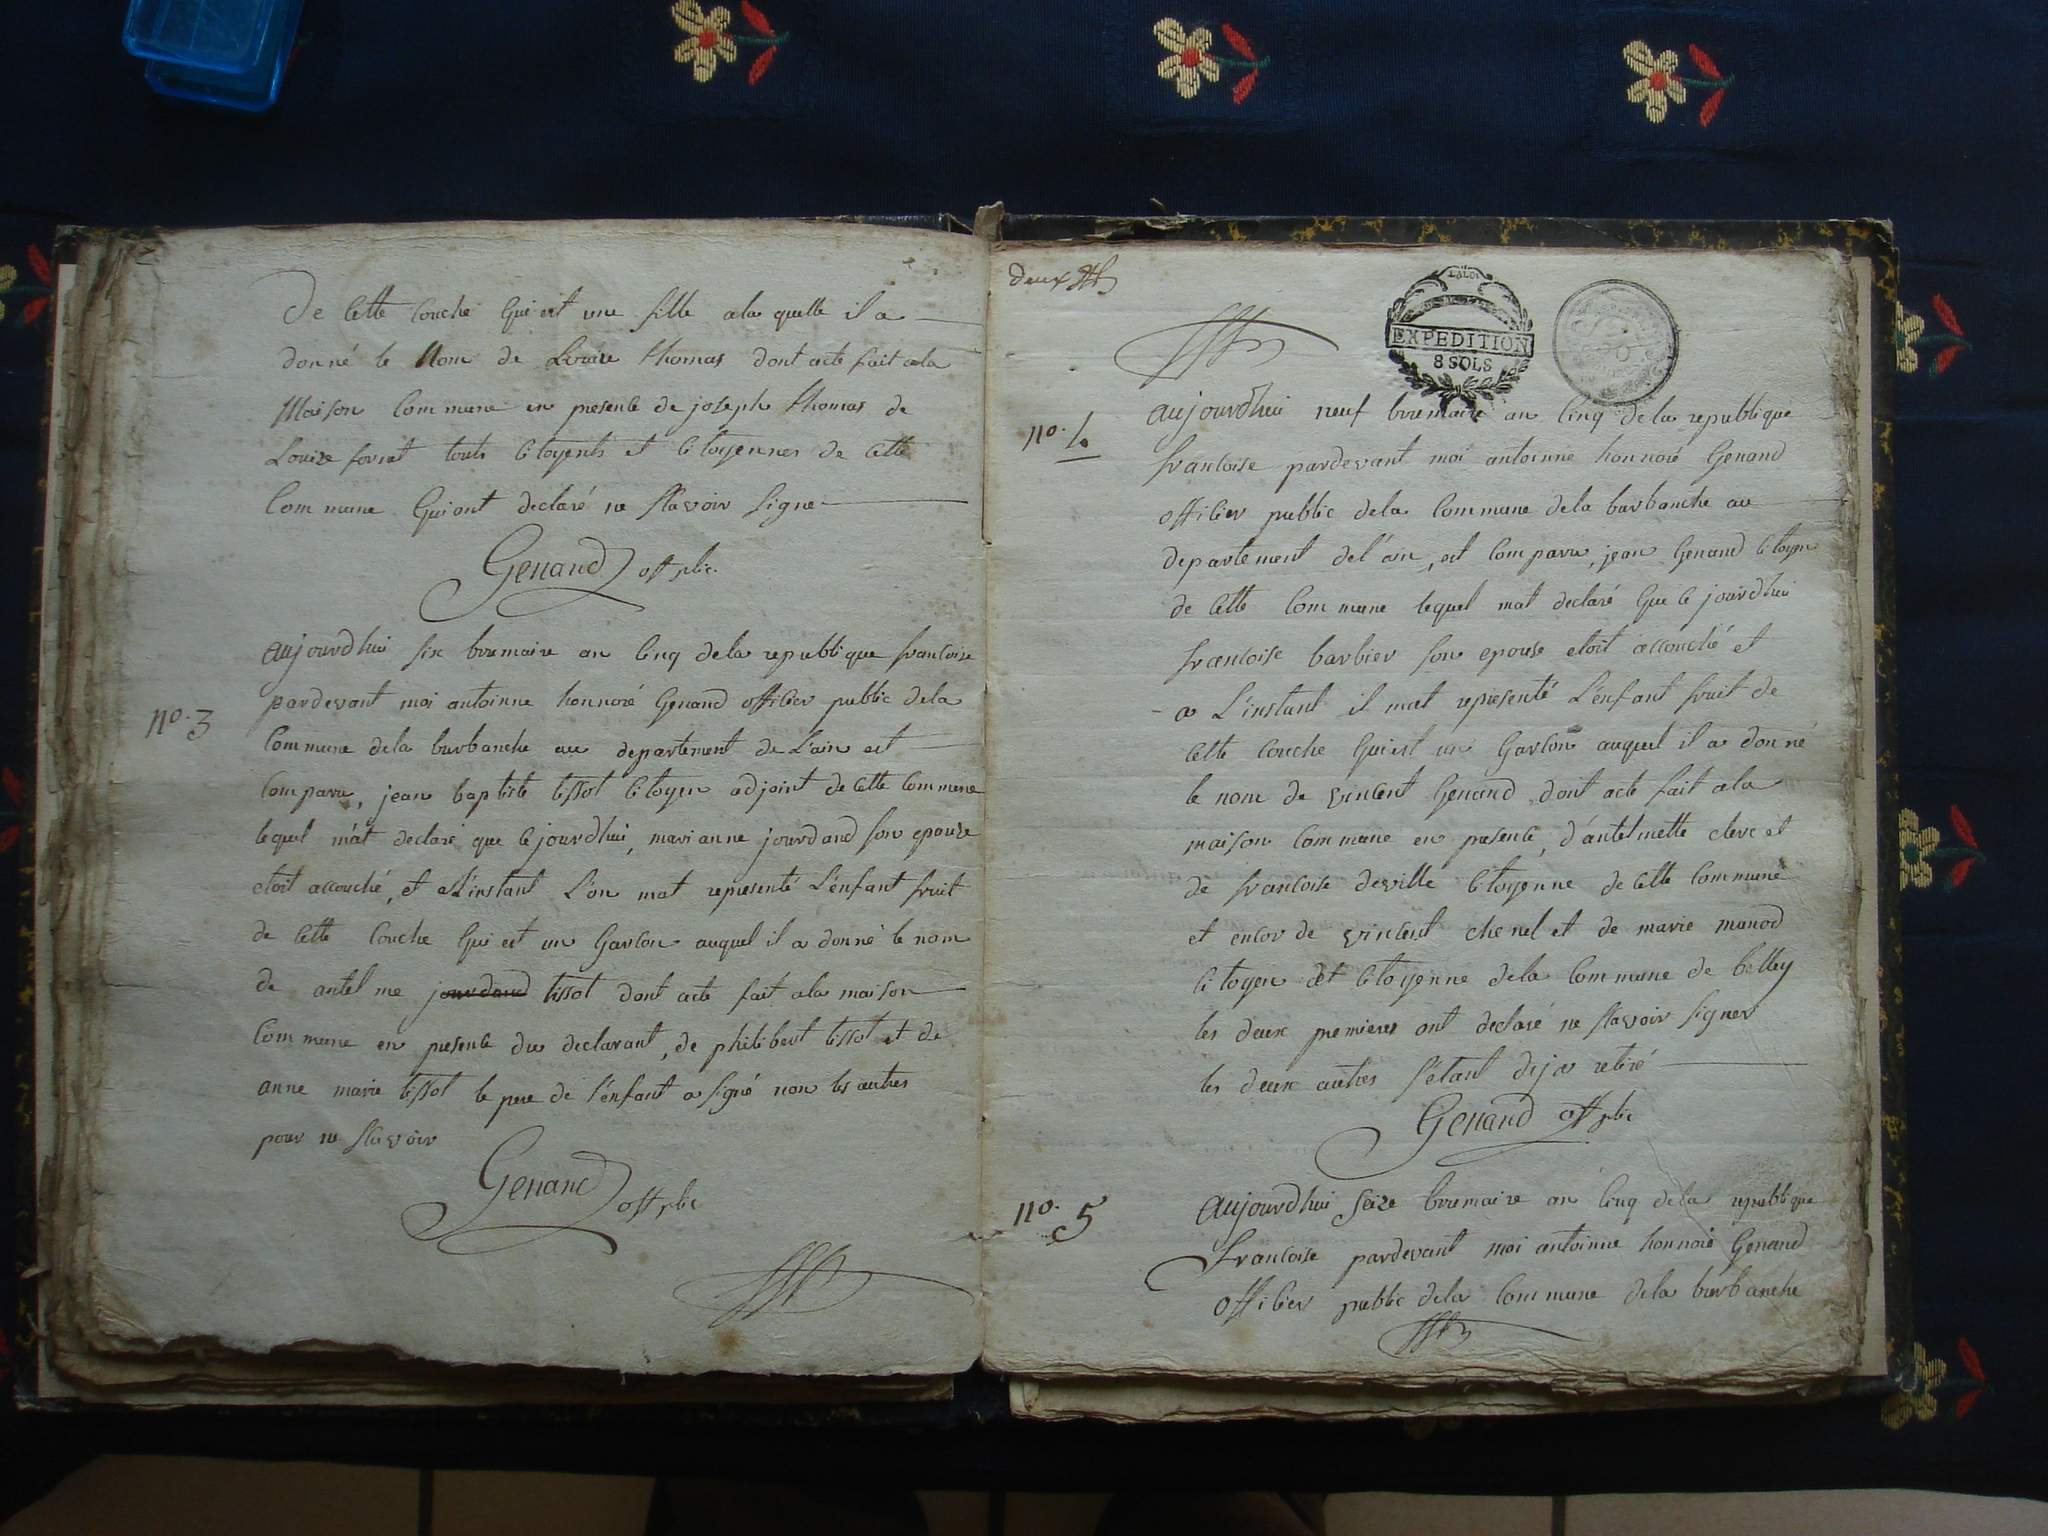 De cette couche qui est une fille a la quelle il a
donné le Nom de Louise thomas dont acte fait a la
Maison Commune en presence de joseph thomas de
Louize forrat touts citoyents et citoyennes de cette
Commune qui ont declaré ne sçavoir signe
Genand off. plic.
no. 3
aujourdhui six brumaire an cinq de la republique francoise
pardevant moi antoinne honnoré Genand officier public de la
Commune de la burbanche au departement de L'ain est
Comparu, jean baptiste tissot citoyen adjoint de cette commune
lequel m'at declaré que ce jourdhui, marianne jourdand son epouze
etoit accouché, et a L'instant L'on mat representé L'énfant fruit
de cette couche qui est un Garcon auquel il a donné le nom
de antelme jourdand tissot dont acte fait a la maison
Commune en presence du declarant, de philibert tissot et de
anne marie tissot le pere de l'énfant a signé non les autres
pour ne sçavoir
Genand off plic
deux
LA LOI
EXPEDITION
8 SOLS
no. 4.
aujourdhui neuf brumaire an cinq de la republique
francoise pardevant moi antoinne honnoré Genand
officier public de la Commune de la burbanche au
departement de l'ain, est comparu, jean Genand citoyen
de cette commune lequel mat declaré que ce jourdhui
francoise barbier son epouse etoit accouché et
a L'instant il mat representé L'énfant fruit de
cette couche qui est un Garcon auquel il a donné
le nom de vincent Genand, dont acte fait a la
maison commune en presence, d'antelmette clerc et
de francoise deville citoyenne de cette commune
et encor de vincent chenel et de marie munod
citoyen et citoyenne de la Commune de belley
les deux premieres ont declaré ne sçavoir signer
les deux autres s'étant deja retiré
Genand off plic
no. 5
aujourdhui seize brumaire an cinq de la republique
francoise pardevant moi antoinne honnoré Genand
officier public de la commune de la burbanche